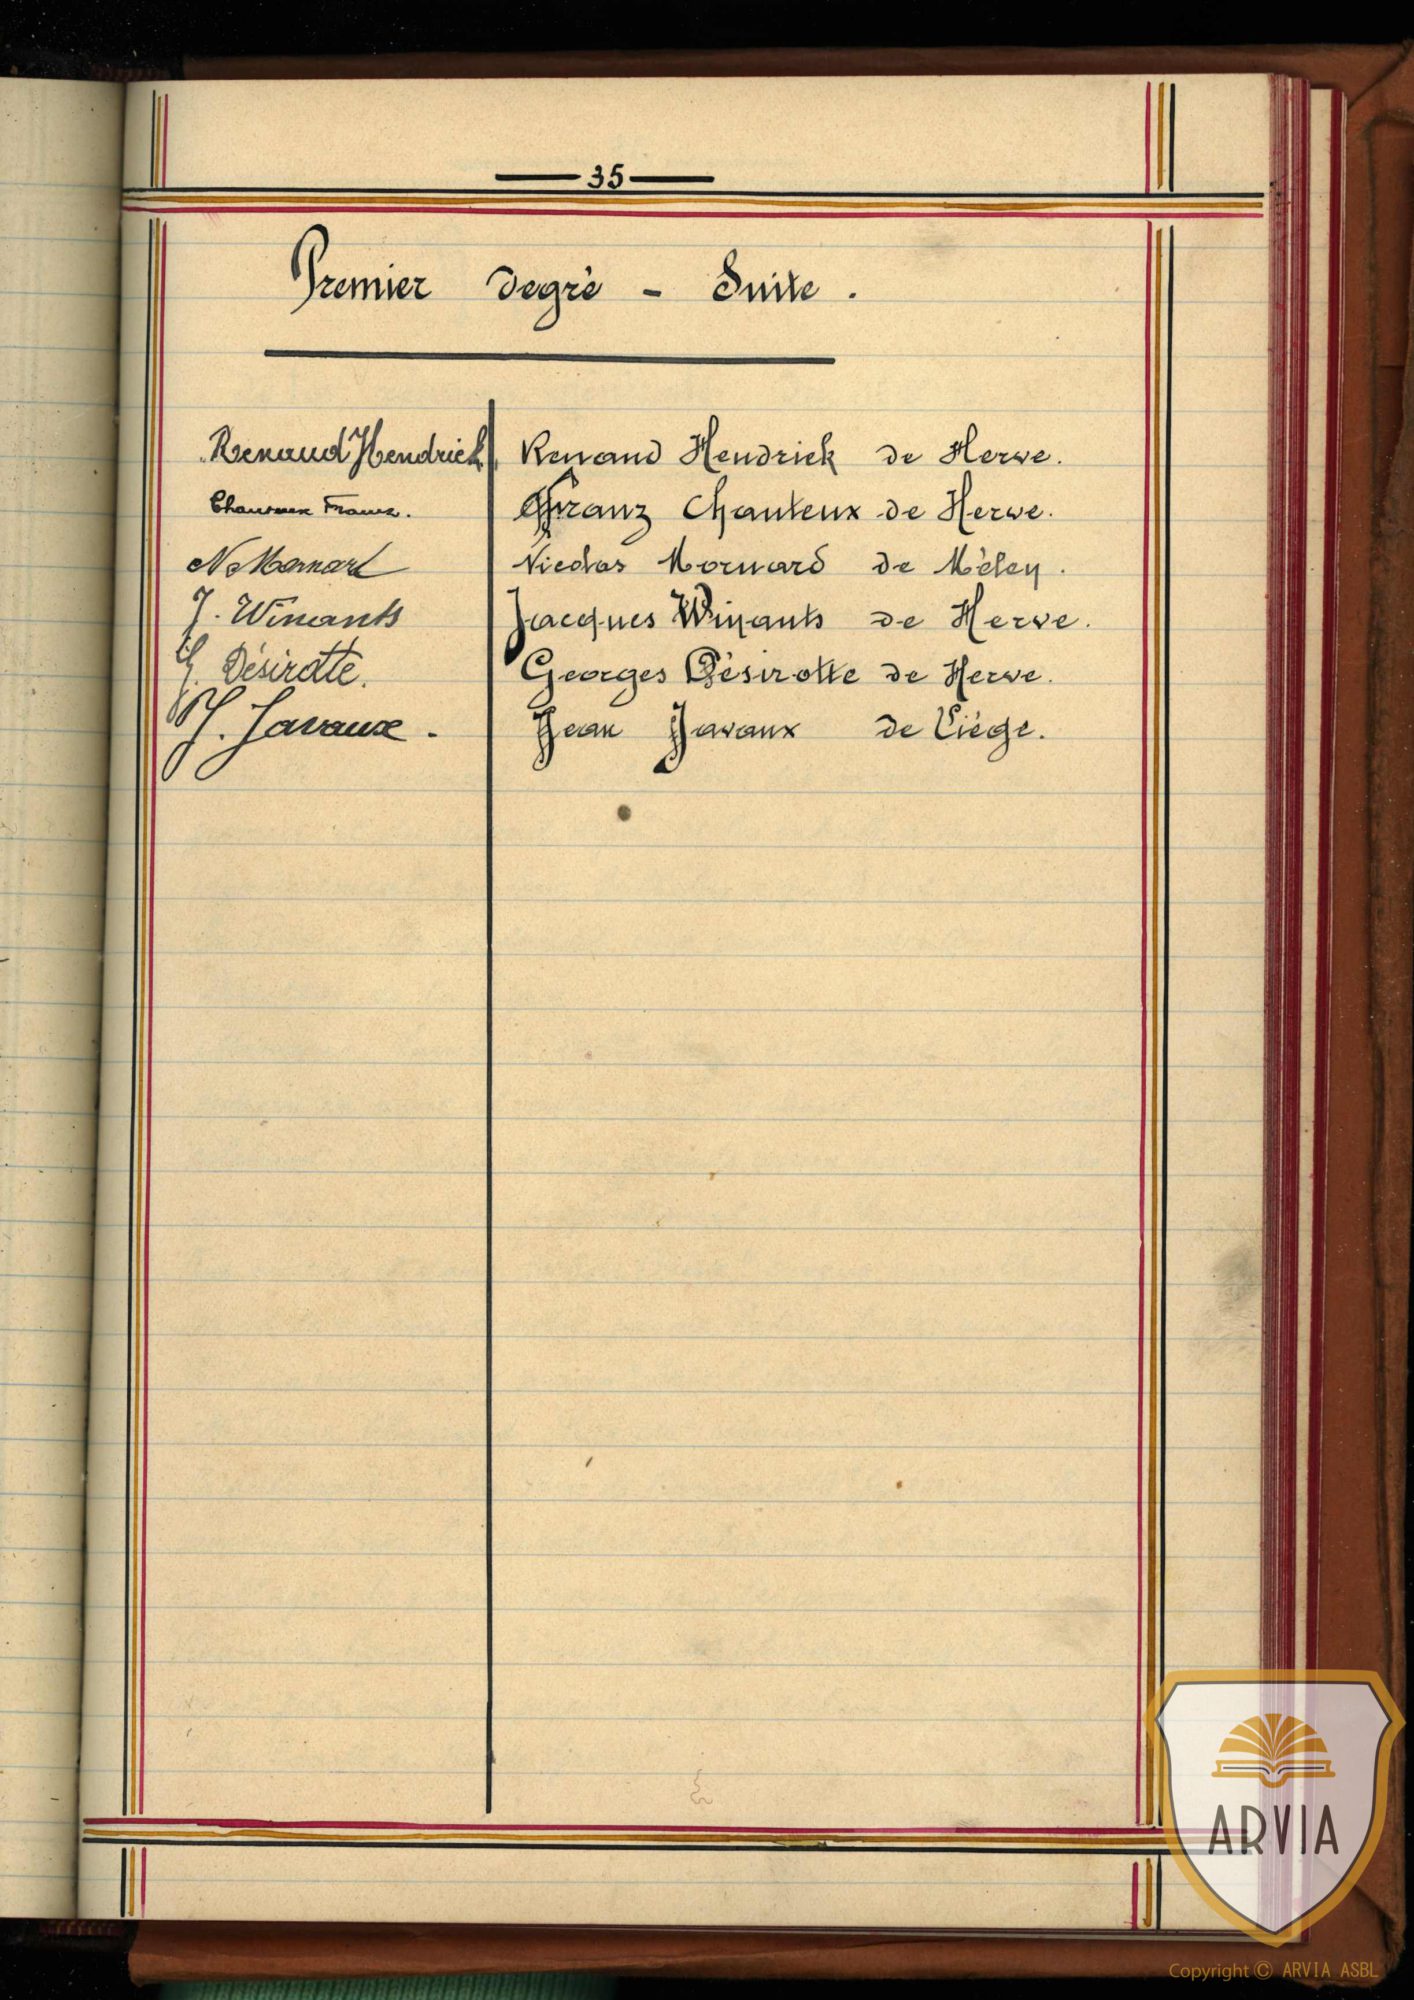 — 35 —
Premier degré - Suite.
Renaud Hendrick. Renaud Hendrick de Herve.
Chanteux Franz. Franz Chanteux de Herve.
N. Mornard Nicolas Mornard de Mélen.
J. Winants Jacques Winants de Herve.
G. Désirotte. Georges Désirotte de Herve.
J. Javaux. Jean Javaux de Liége.
ARVIA
Copyright © ARVIA ASBL